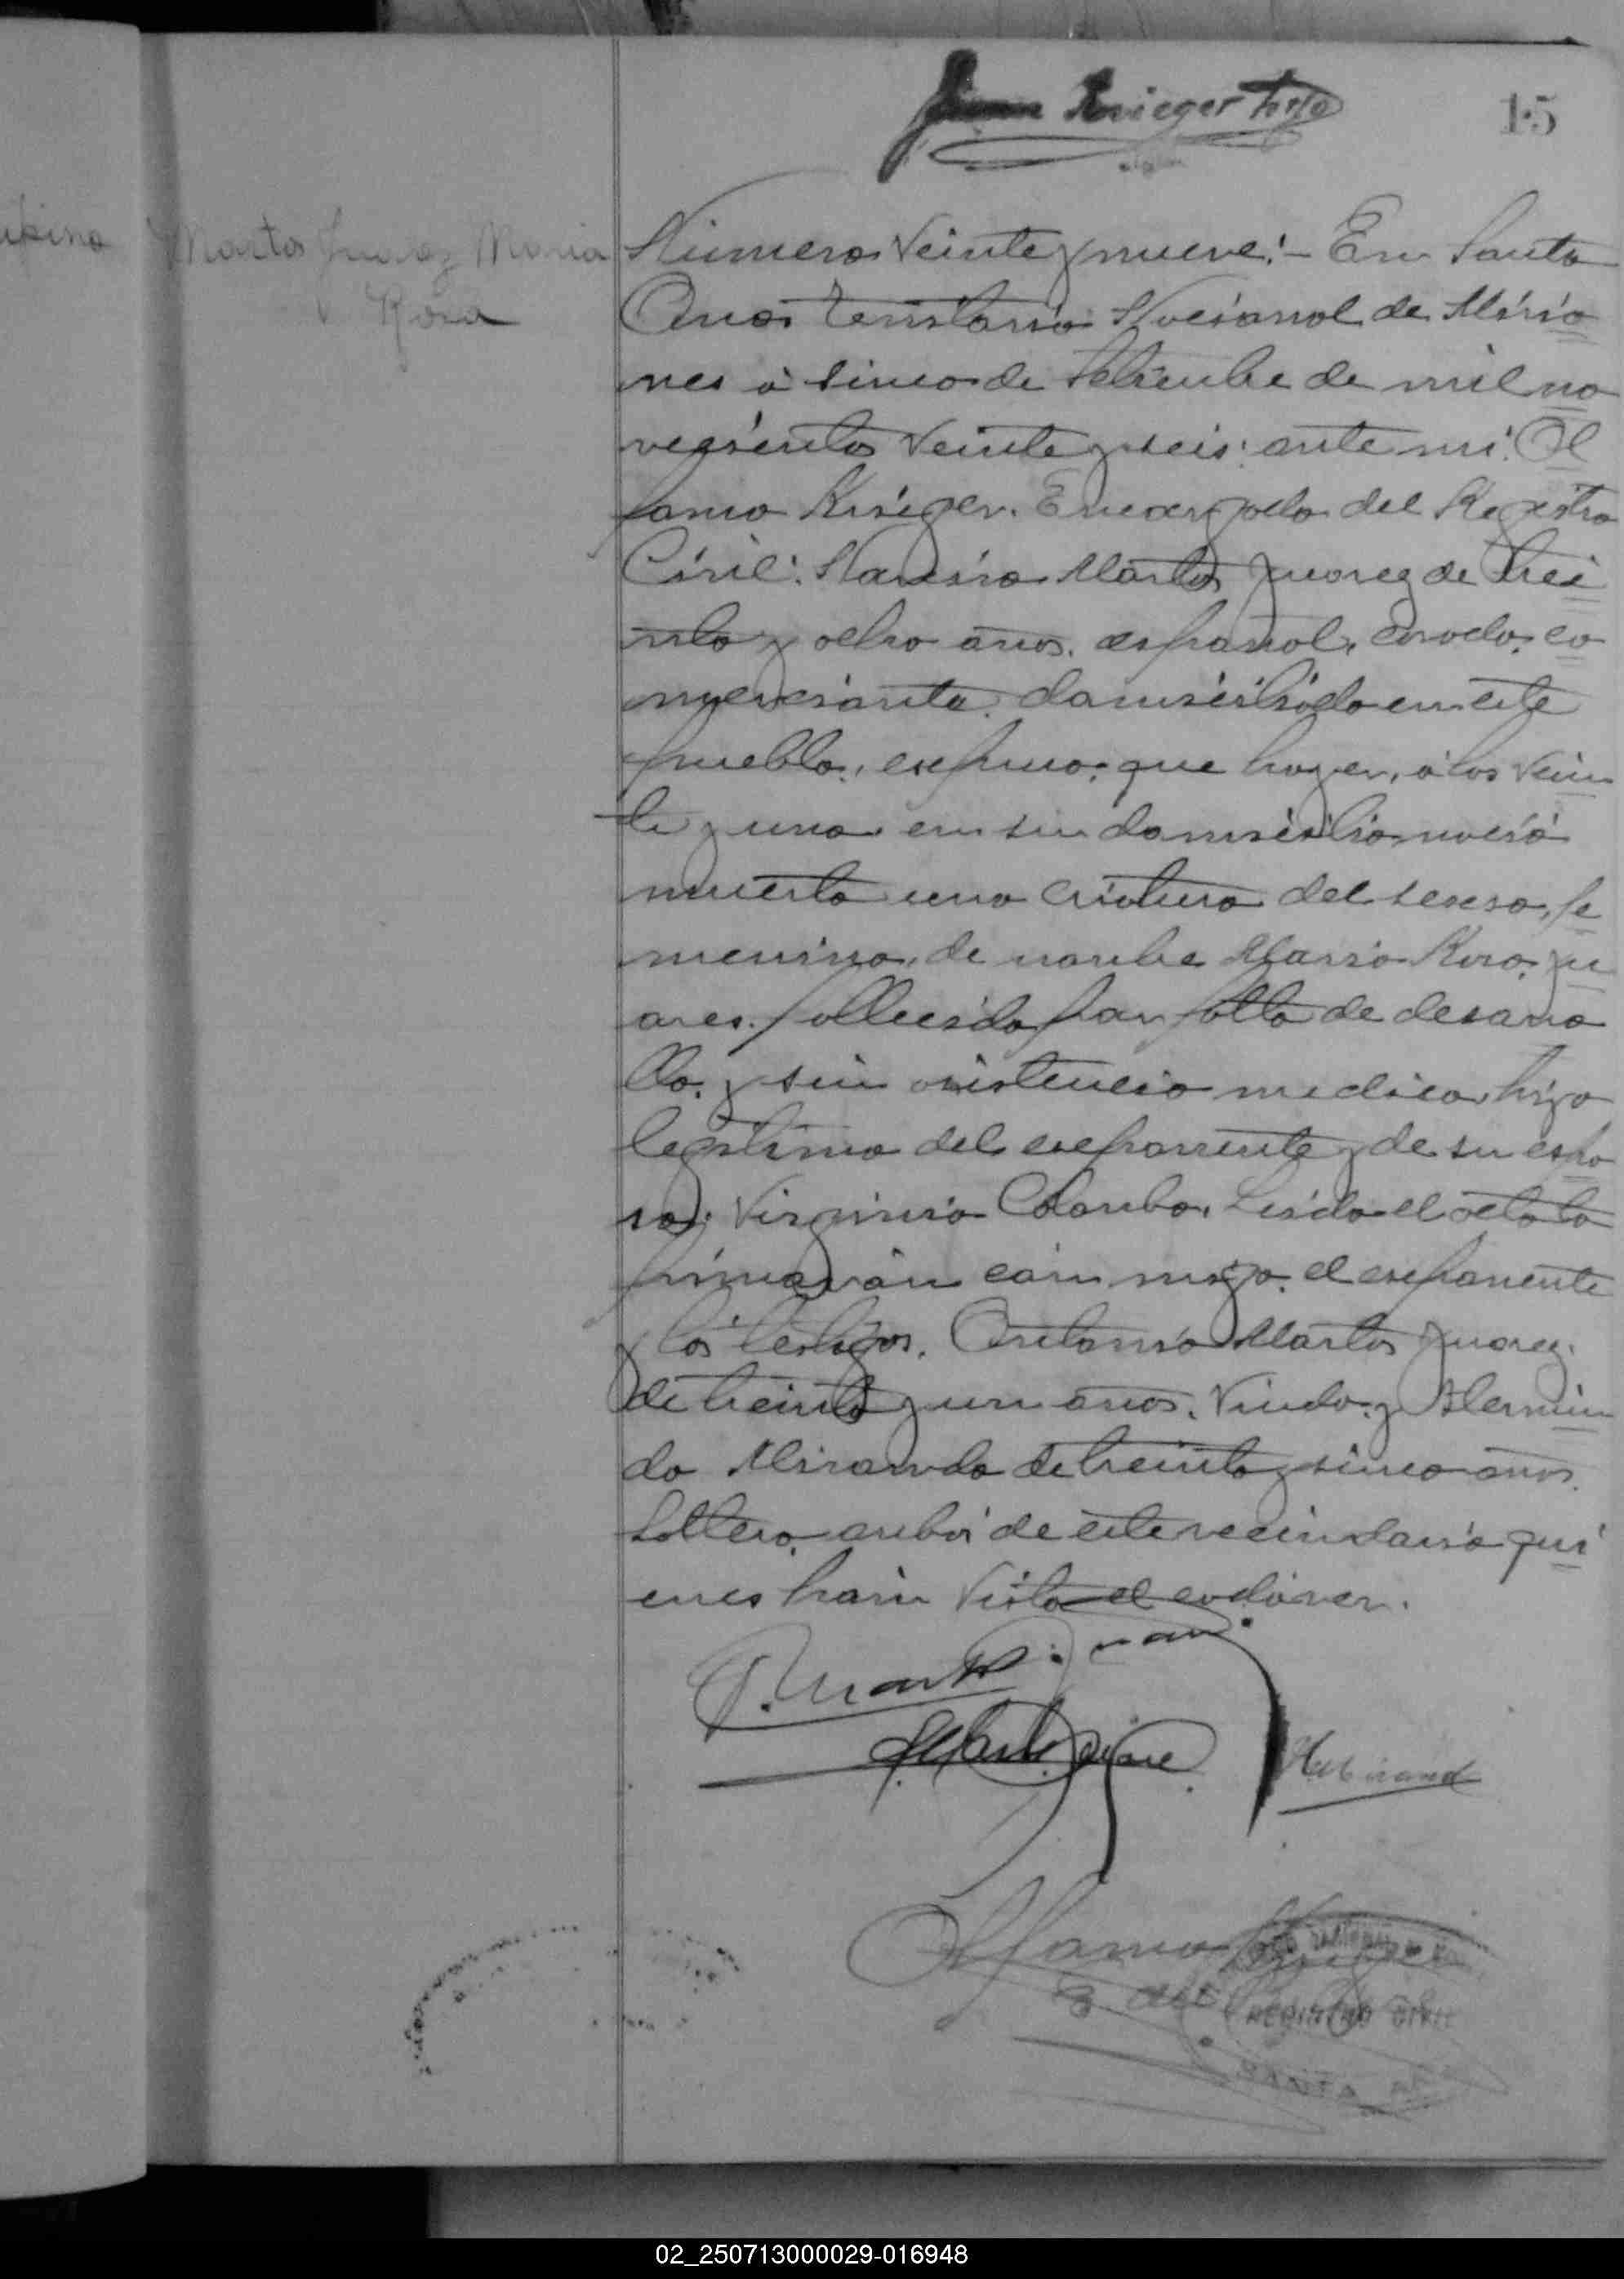 15
Martos Juarez Maria
Rosa
Número Veinte y nueve:- En Santa
Ana territorio Nacional de Misio
nes á sinco de Setiembre de mil no
vecientos Veinte y seis: ante mi: Ol
Krieger. Encargado del Registro
Civil: Narciso Martos Juarez de trei
nta y ocho años. español, casado, co
merciante. domisiliado en este
pueblo, expuso: que hayer, á las vein
te y una en su domisilio nació
muerta una criatura del sexso, fe
menino, de nombre Maria Rosa, ju
arez. fallecida por falta de desarro
llo. y sin asistencia medica, hija
legitima del exponente y de su espo
sa: Virginia Colombo. Leida el acta la
firmaván con migo. el exponente
y los testigos. Antonio Martos Juarez.
de treinta y un años. Viudo. y Hermin
do Miranda de treinta y sinco años.
Soltero. anbos de este vecindario qui
enes hain Visto el cadáver.
REGISTRO CIVIL
SANTA
02_250713000029-016948